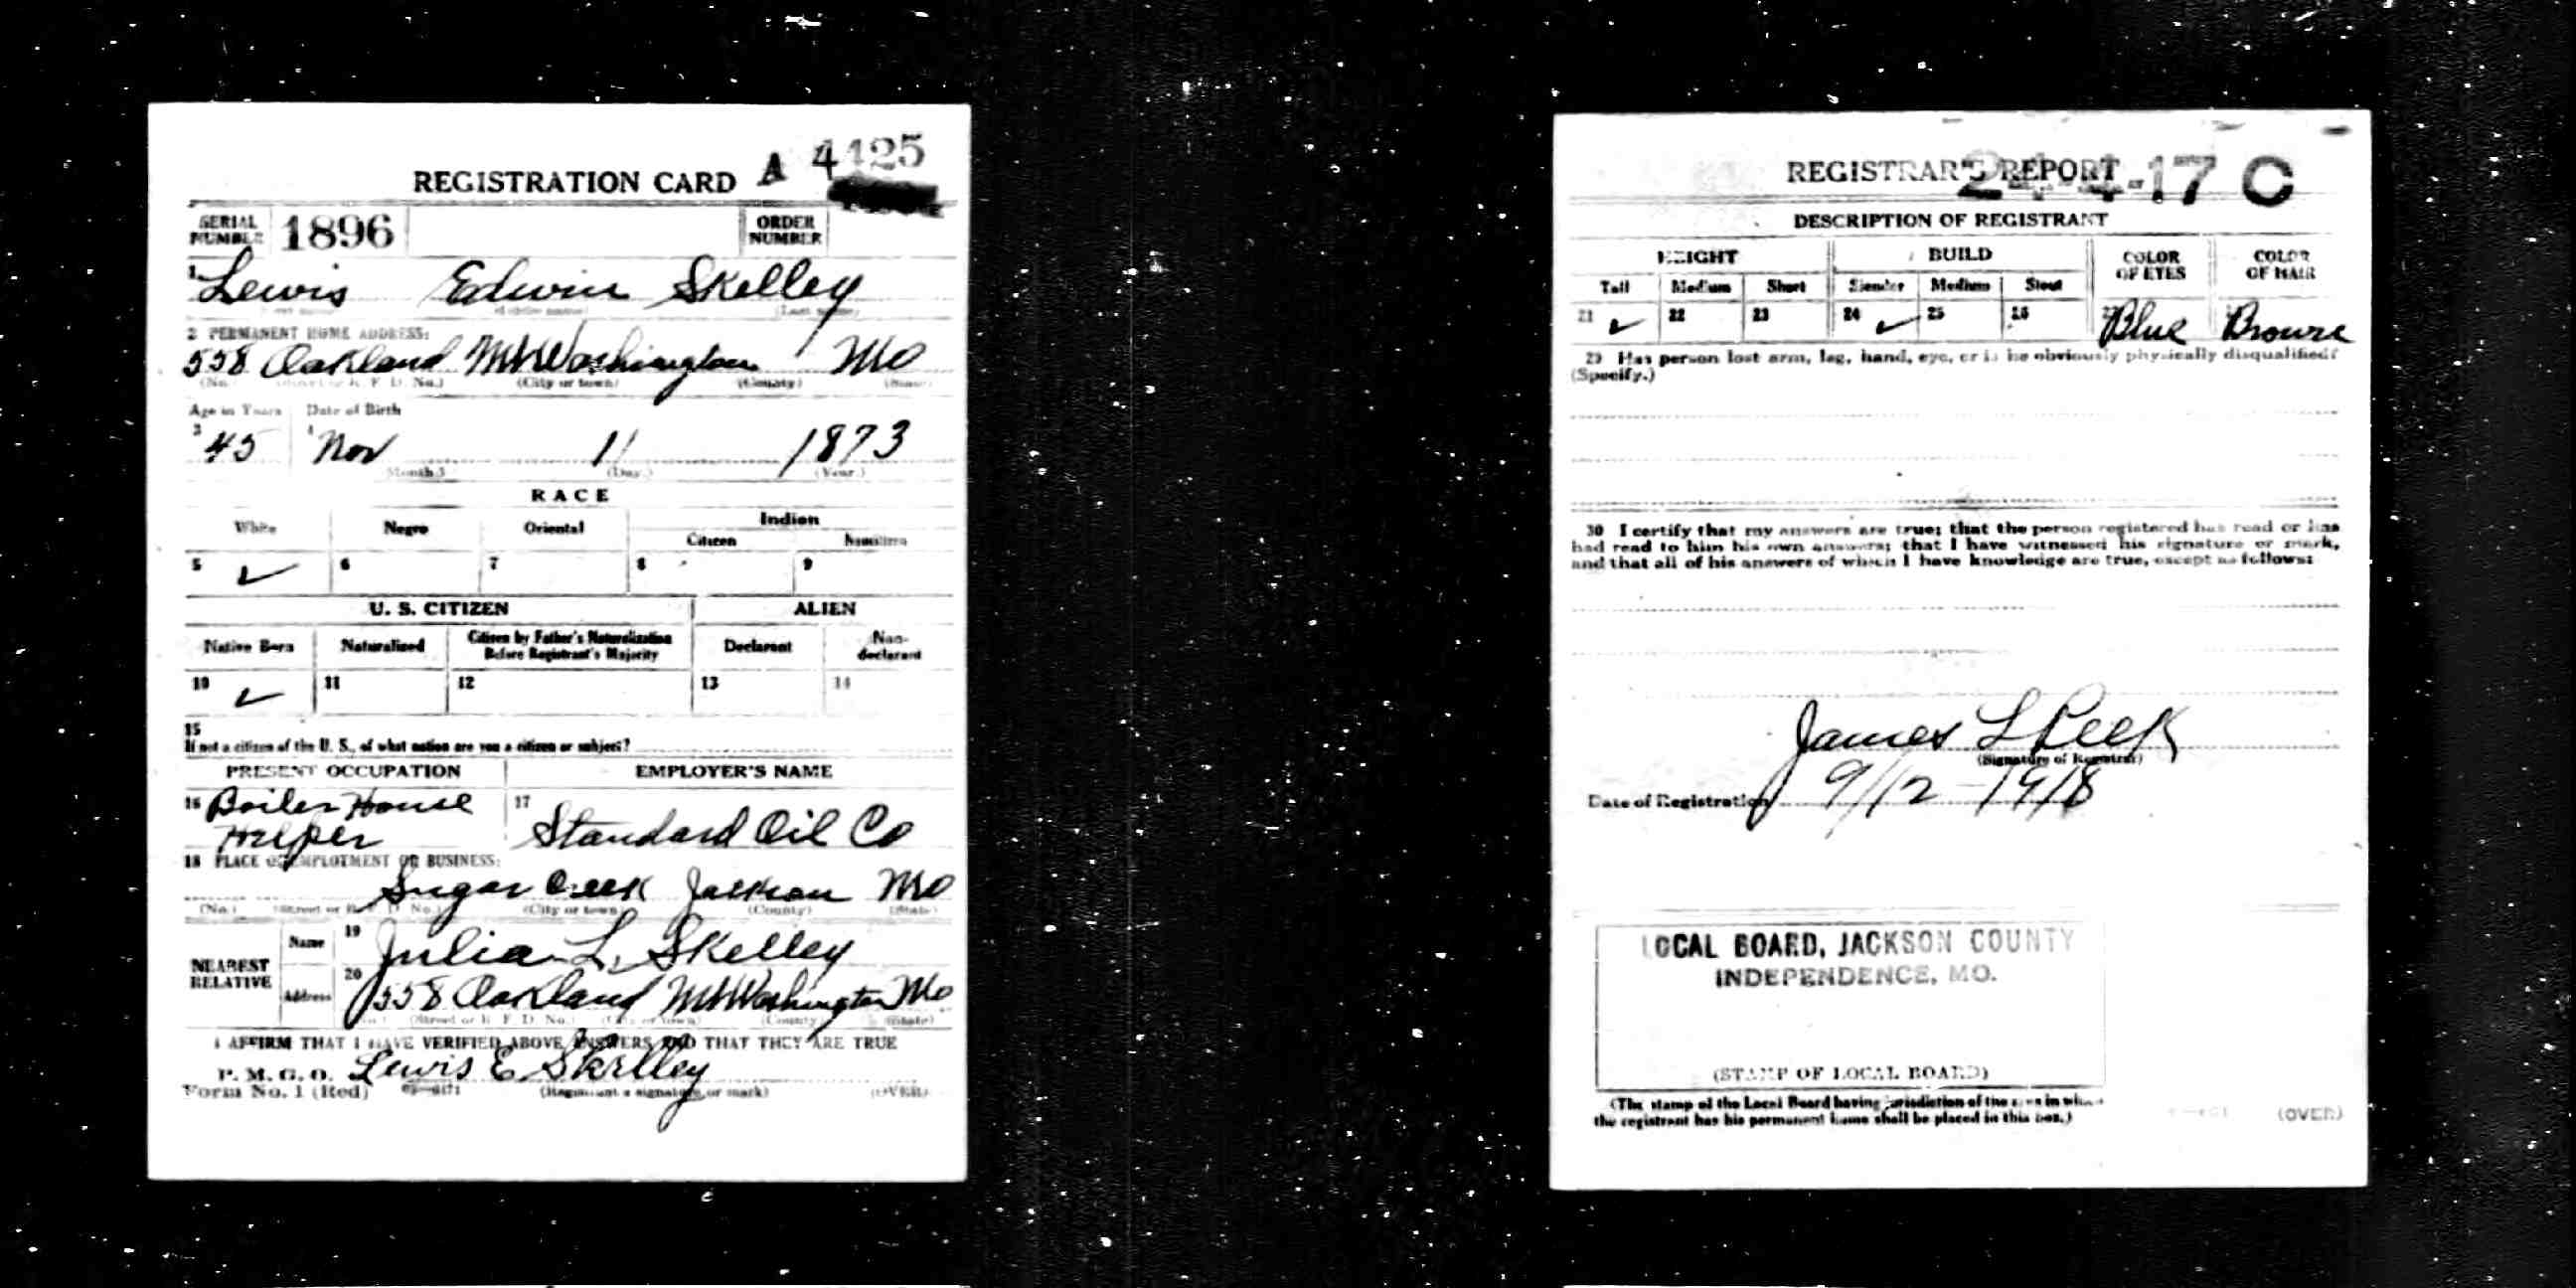 REGISTRATION CARD A 4425
SERIAL NUMBER 1896 ORDER NUMBER
1 Lewis Edwin Skelley
(Last name)
2 PERMANENT HOME ADDRESS:
558 Oakland Mt Washington Mo
(No.) (City or town) (County) (State)
Age in Years Date of Birth
3 45 4 Nov 11 1873
(Month.) (Day.) (Year.)
RACE
White Negro Oriental Indian
Citizen
5 ✓ 6 7 8 9
U. S. CITIZEN ALIEN
Native Born Naturalized Citizen by Father's Naturalization Before Registrant's Majority Declarant Non-declarant
10 ✓ 11 12 13 14
15
If not a citizen of the U. S., of what nation are you a citizen or subject?
PRESENT OCCUPATION EMPLOYER'S NAME
16 Boiler House Helper 17 Standard Oil Co
18 PLACE OF EMPLOYMENT OR BUSINESS:
Sugar Creek Jackson Mo
(No.) (Street or R. F. D. No.) (City or town) (County) (State)
NEAREST RELATIVE Name 19 Julia L. Skelley
Address 20 558 Oakland Mt Washington Mo
(No.) (Street or R. F. D. No.) (City or town) (County) (State)
I AFFIRM THAT I HAVE VERIFIED ABOVE ANSWERS AND THAT THEY ARE TRUE
P. M. G. O.
Form No. 1 (Red) Lewis E Skelley
(Registrant's signature or mark) (OVER)
REGISTRAR'S REPORT 24-4-17 C
DESCRIPTION OF REGISTRANT
HEIGHT BUILD COLOR OF EYES COLOR OF HAIR
Tall Medium Short Slender Medium Stout
21 ✓ 22 23 24 ✓ 25 26 Blue Brown
29 Has person lost arm, leg, hand, eye, or is he obviously physically disqualified?
(Specify.)
30 I certify that my answers are true; that the person registered has read or has
had read to him his own answers; that I have witnessed his signature or mark,
and that all of his answers of which I have knowledge are true, except as follows:
James L Peek
(Signature of Registrar)
Date of Registration 9/12-1918
LOCAL BOARD, JACKSON COUNTY
INDEPENDENCE, MO.
(STAMP OF LOCAL BOARD)
(The stamp of the Local Board having jurisdiction of the area in which
the registrant has his permanent home shall be placed in this box.)
(OVER)